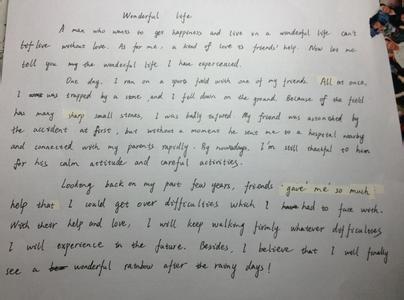 Wonderful life
A man who wants to get happiness and live in a wonderful life can't
live without love. As for me, a kind of love is friends' help. Now let me
tell you my the wonderful life I have experienced.
One day, I ran on a sports field with one of my friends. All at once,
I was trapped by a stone and I fell down on the ground. Because of the field
has many sharp small stones, I was badly injured. My friend was astonished by
the accident at first, but without a moment he sent me to a hospital nearby
and connected with my parents rapidly. By nowadays, I'm still thankful to him
for his calm attitude and careful activities.
Looking back on my past few years, friends gave me so much
help that I could get over difficulties which I had to face with.
With their help and love, I will keep walking firmly whatever difficulties
I will experience in the future. Besides, I believe that I will finally
see a wonderful rainbow after the rainy days!